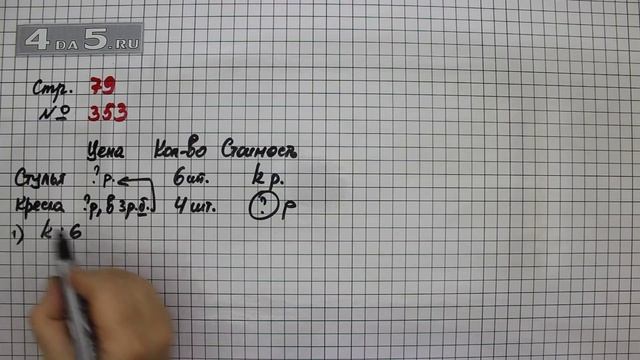 4ДА5.RU
Стр. 79
№ 353
Цена Кол-во Стоимость
Стулья ? р. 6 шт. k р.
Кресла ? р, в 3 р. б. 4 шт. ? р
1) k : 6